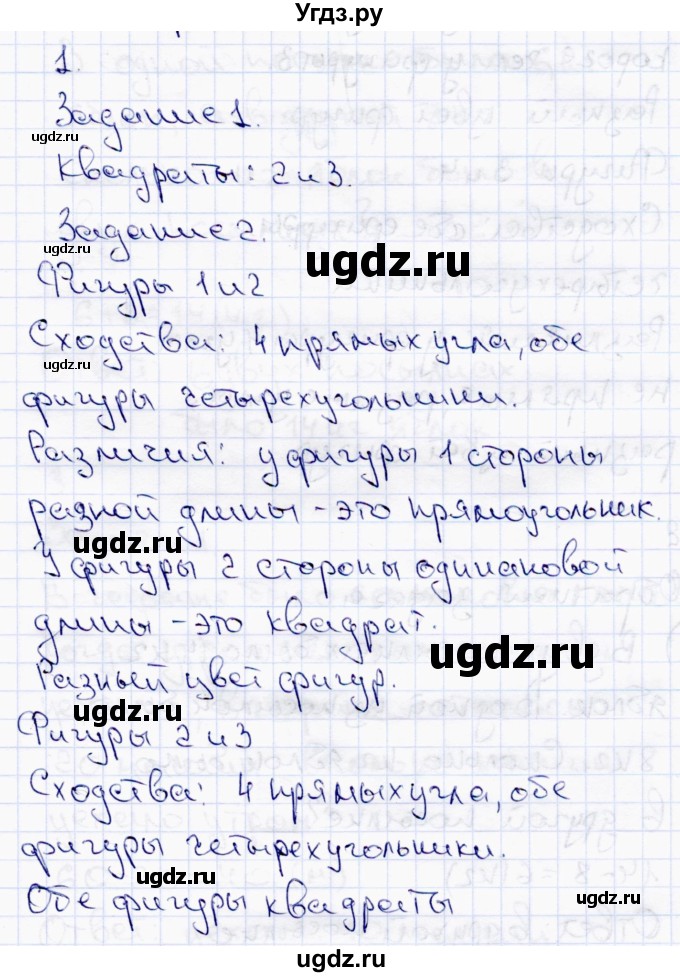 Угдз.ру
1.
Задание 1.
ugdz.ru
Квадраты: 2 и 3.
Задание 2.
ugdz.ru
ugdz.ru
Фигуры 1 и 2
Сходства: 4 прямых угла, обе
ugdz.ru
фигуры четырехугольники.
Различия: у фигуры 1 стороны
разной длины - это прямоугольник.
ugdz.ru
У фигуры 2 стороны одинаковой
длины - это квадрат.
ugdz.ru
Разный цвет фигур.
ugdz.ru
Фигуры 2 и 3
Сходства: 4 прямых угла, обе
фигуры четырехугольники.
ugdz.ru
ugdz.ru
Обе фигуры квадраты
ugdz.ru